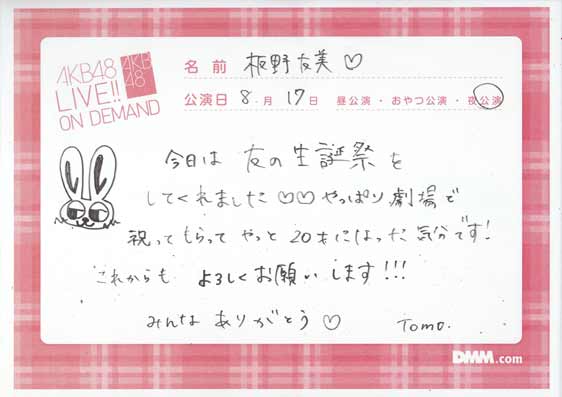 AKB48
LIVE!!
ON DEMAND
AKB
48
名前 板野友美♡
公演日 8月17日 昼公演・おやつ公演・夜公演
今日は 友の生誕祭を
してくれました♡♡やっぱり劇場で
祝ってもらって やっと20才になった気分です!
これからも よろしくお願いします!!!
みんな ありがとう♡ Tomo.
DMM.com